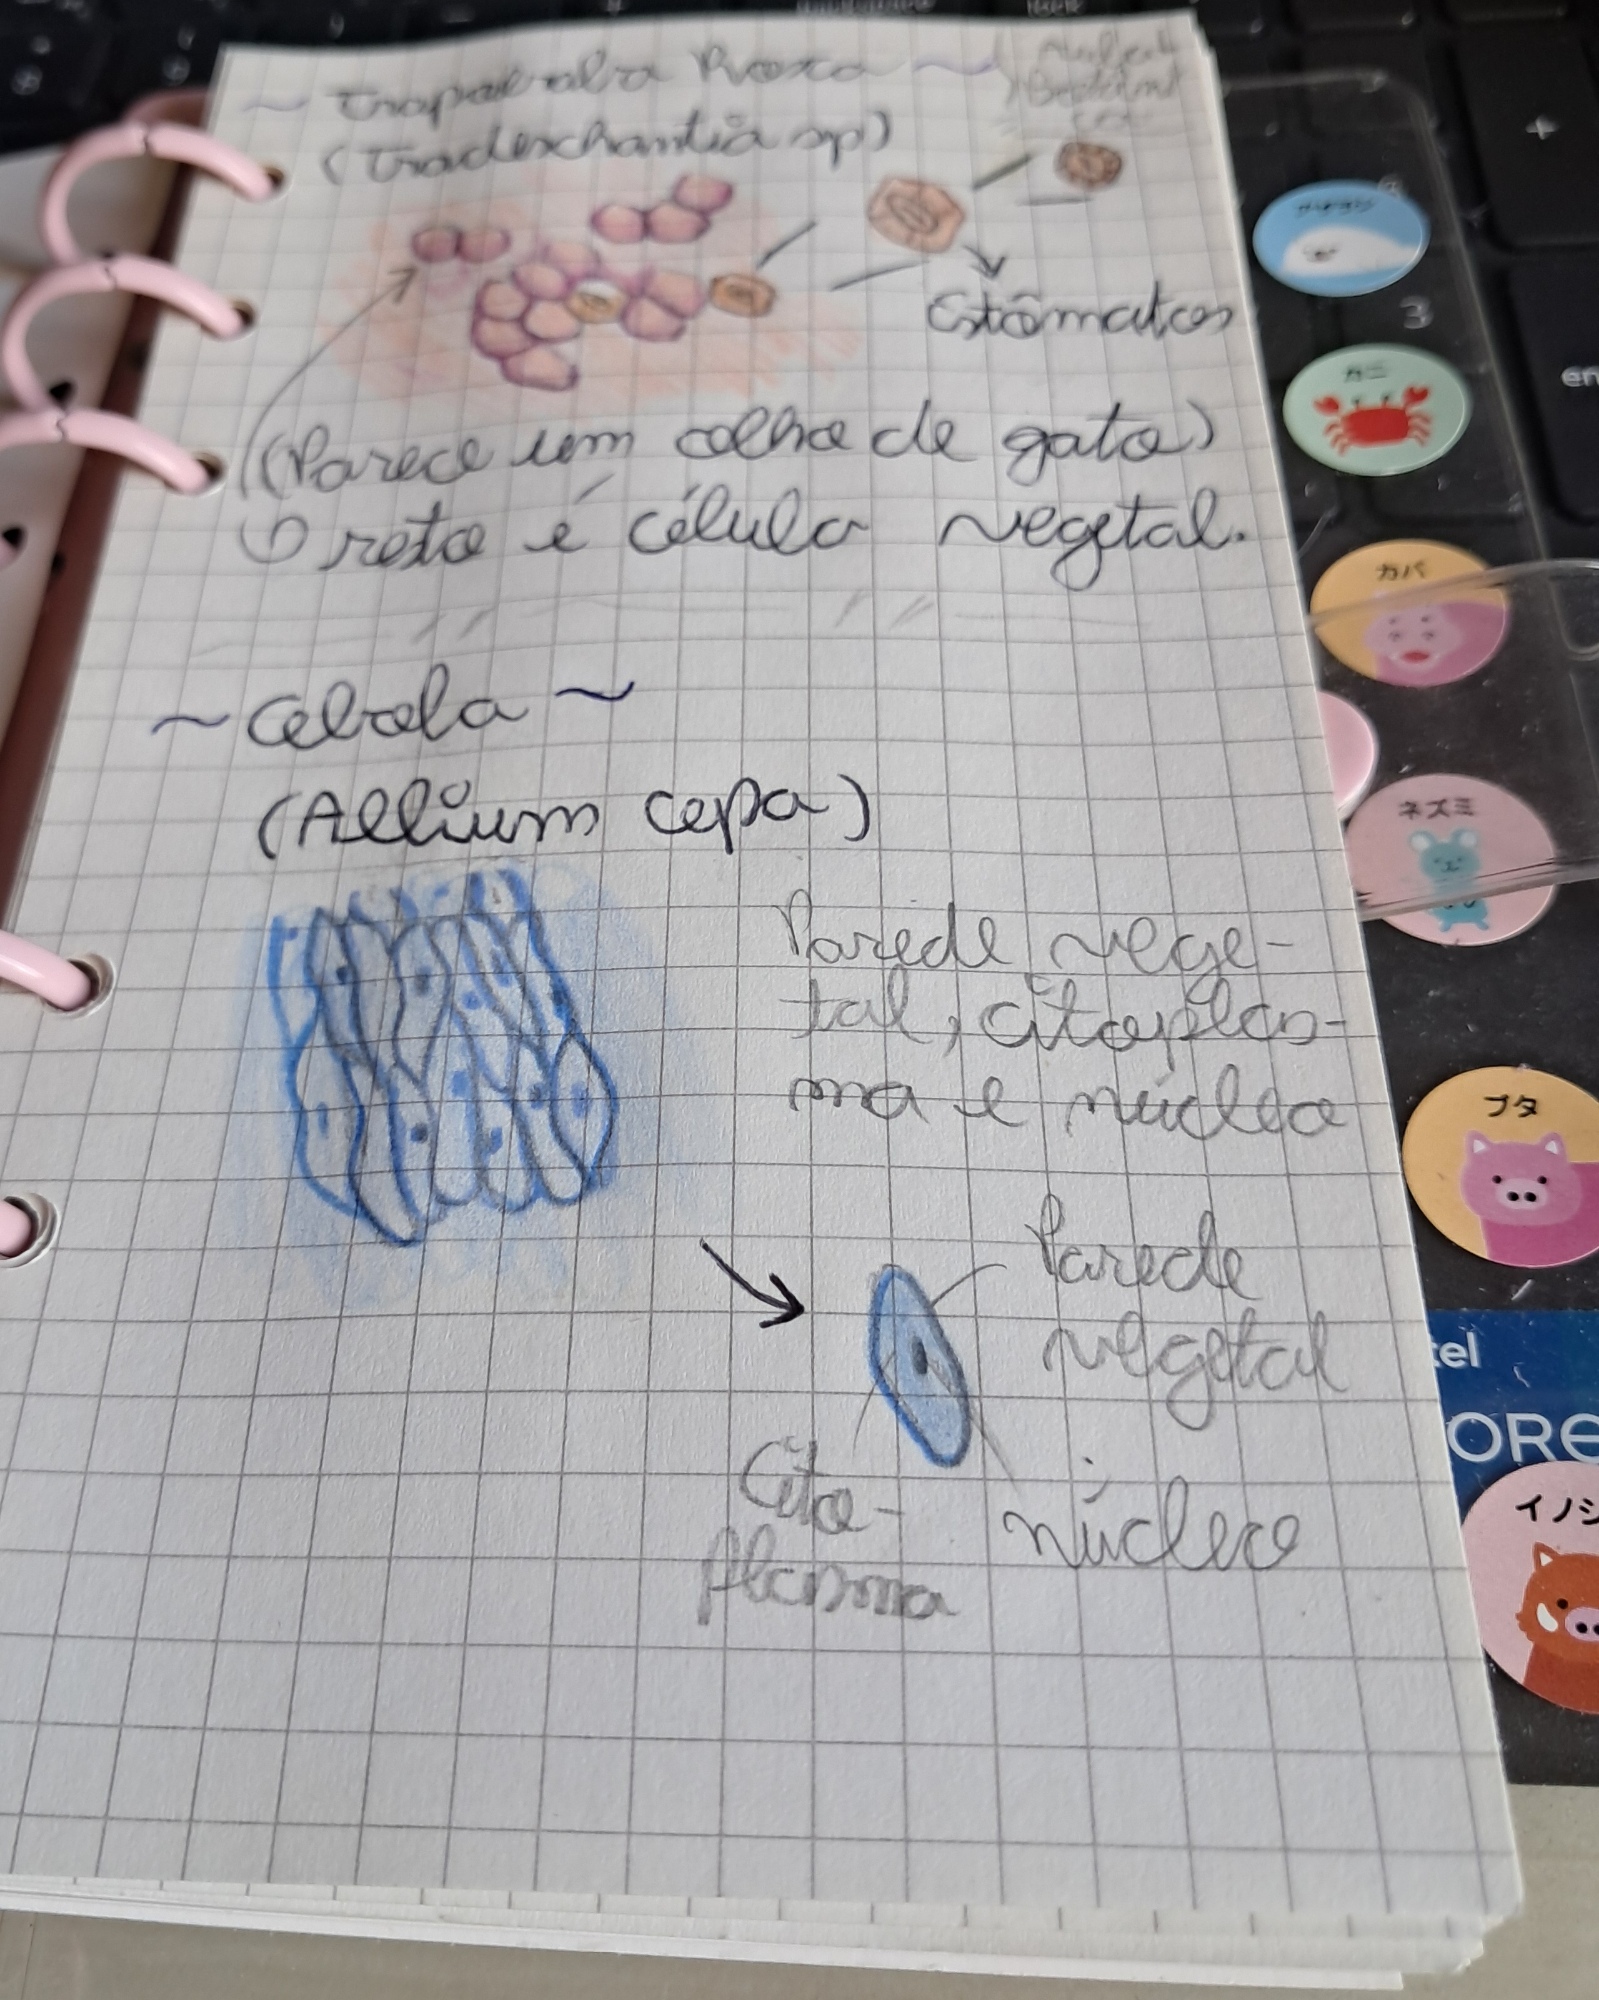 ~ Trapoeraba Roxa ~
(Tradeschantia sp)
Estômatos
(Parece um olho de gato)
O resto é célula vegetal.
~ Cebola ~
(Allium cepa)
Parede vege-
tal, citoplas-
ma e núcleo
Parede
vegetal
Cito-
plasma
núcleo
カニ
カバ
ネズミ
ブタ
イノシ
tel
ORe
en
+
3